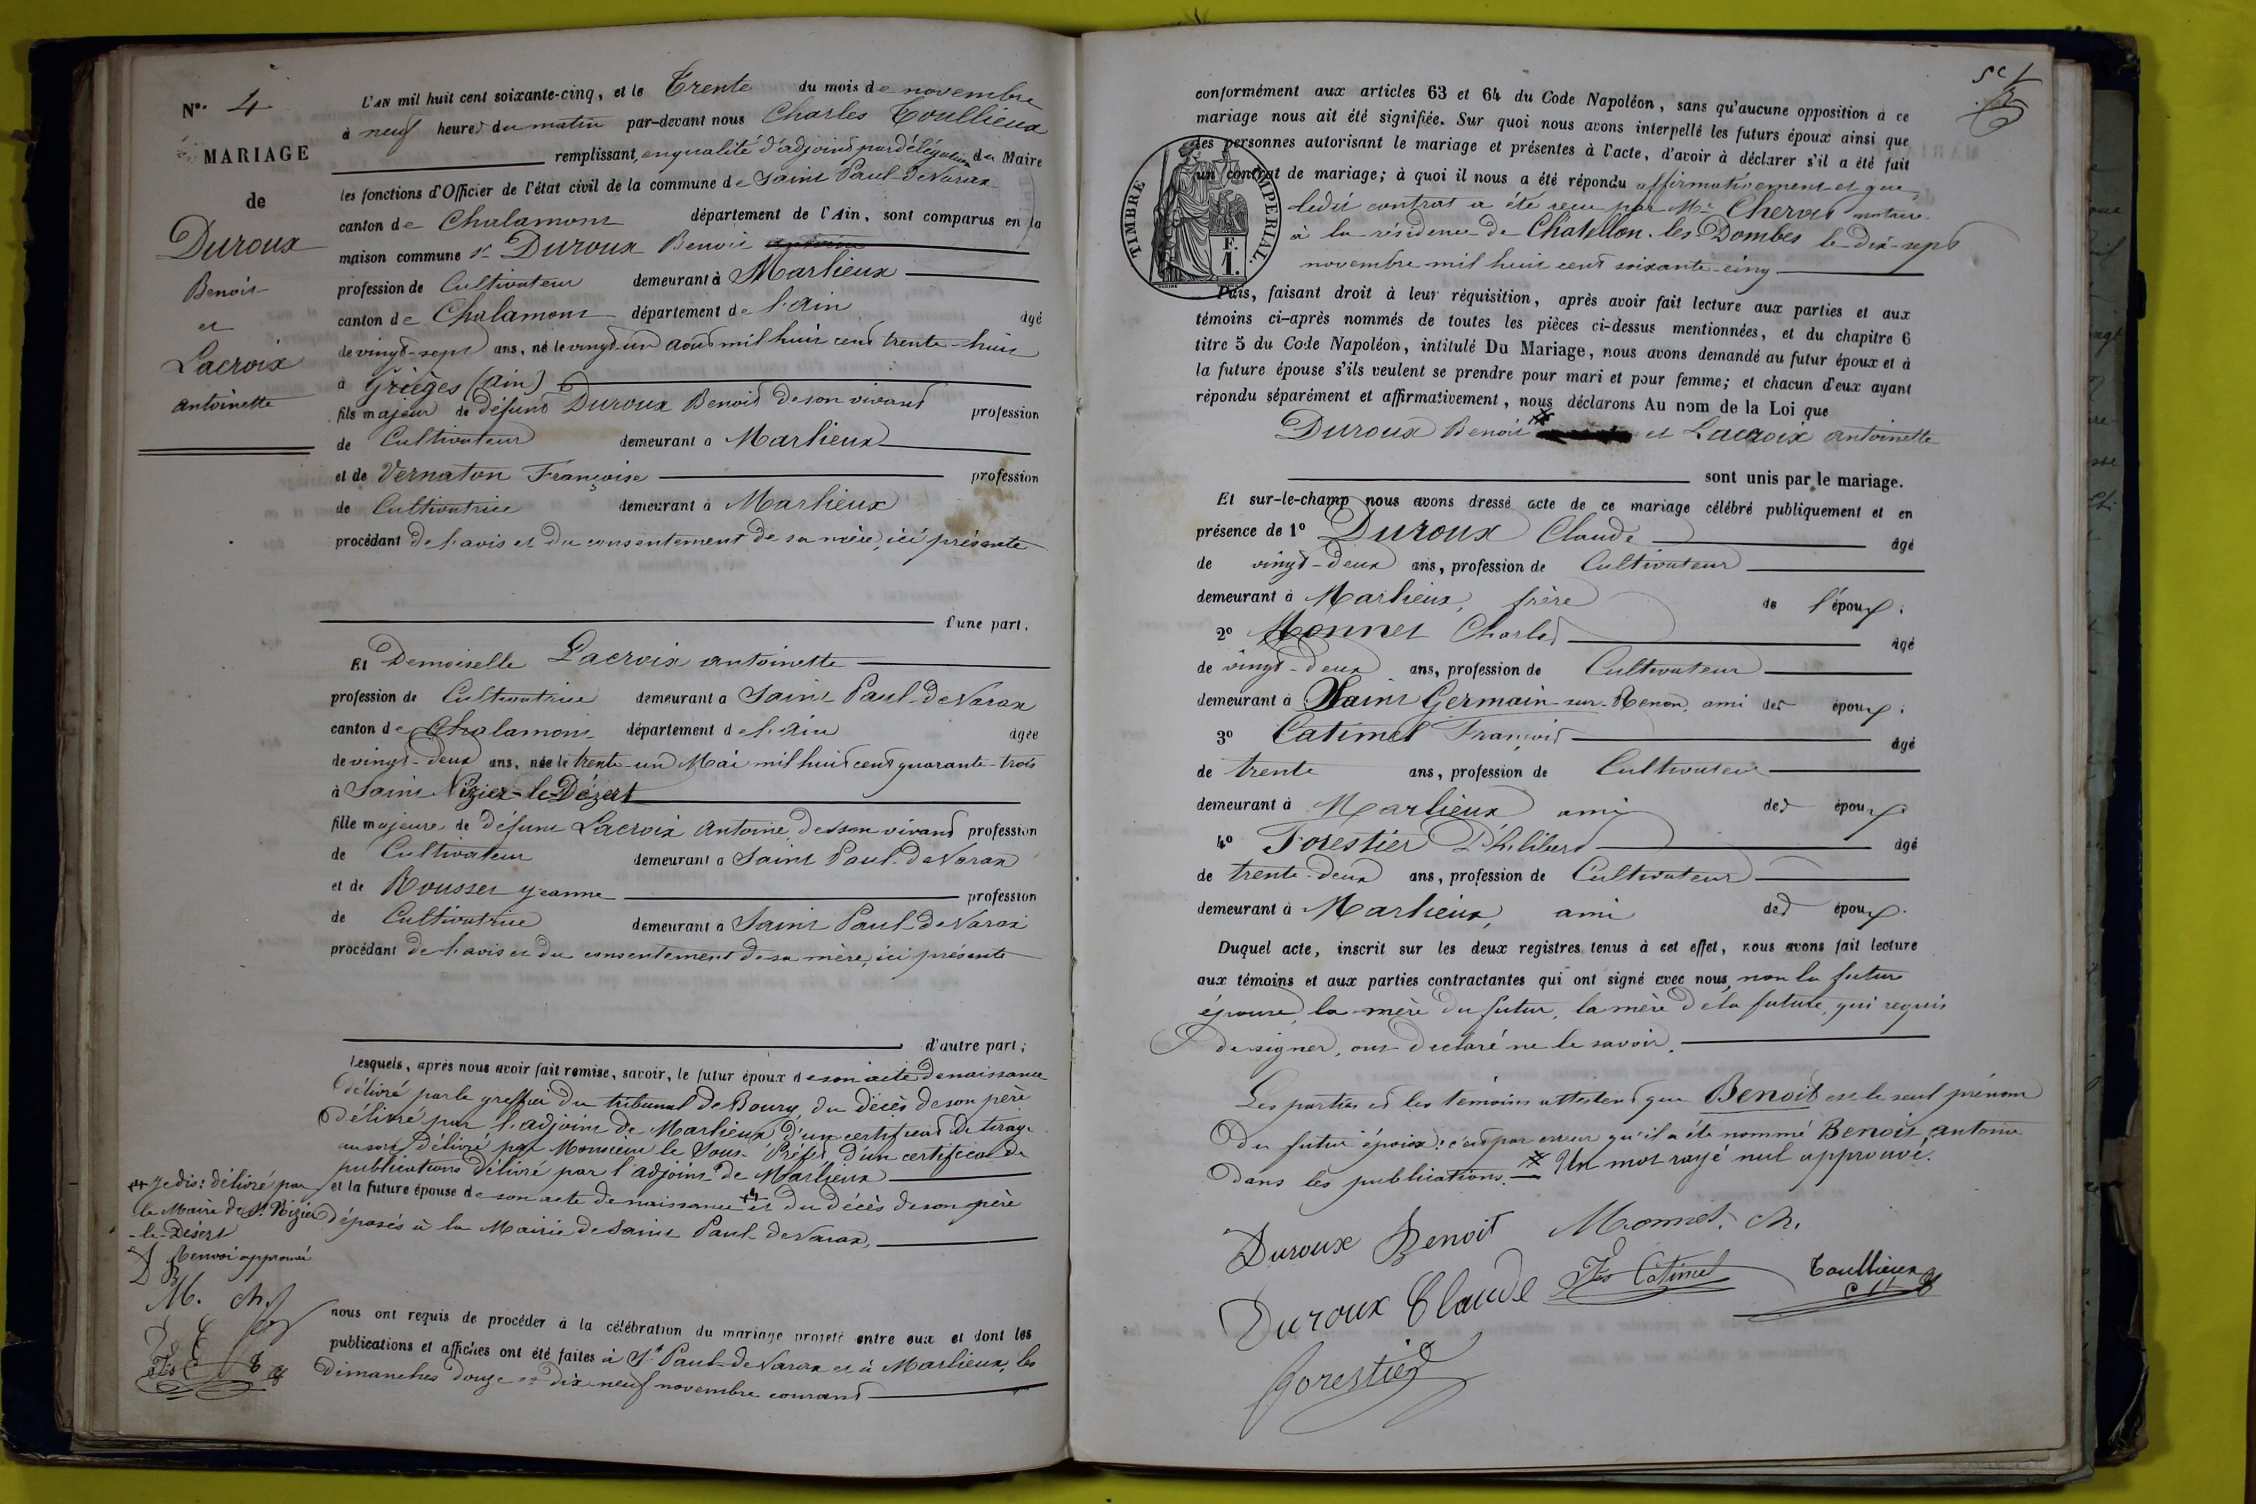 N°. 4
MARIAGE
de
Duroux
Benoit
et
Lacroix
antoinette
L'AN mil huit cent soixante-cinq, et le Trente du mois de novembre
à neuf heures du matin par-devant nous Charles Toullieux
remplissant, en qualité d'adjoint par délégation du Maire
les fonctions d'Officier de l'état civil de la commune de Saint Paul-de Varax
canton de Chalamont département de l'Ain, sont comparus en la
maison commune sr. Duroux Benoit antoine
profession de Cultivateur demeurant à Marlieux
canton de Chalamont département de l'Ain âgé
de vingt-sept ans, né le vingt-un août mil huit cent trente-huit
à Grièges (Ain)
fils majeur de défunt Duroux Benoit de son vivant profession
de Cultivateur demeurant à Marlieux
et de Vernaton Françoise profession
de Cultivatrice demeurant à Marlieux
procédant de l'avis et du consentement de sa mère, ici présente
d'une part.
Et Demoiselle Lacroix antoinette
profession de Cultivatrice demeurant à Saint Paul-de Varax
canton de Chalamont département de l'Ain âgée
de vingt-deux ans, née le trente-un Mai mil huit cent quarante-trois
à Saint Nizier-le-Désert
fille majeure de défunt Lacroix Antoine, de son vivant profession
de Cultivateur demeurant à Saint Paul-de Varax
et de Rousset Jeanne profession
de Cultivatrice demeurant à Saint Paul-de Varax
procédant de l'avis et du consentement de sa mère, ici présente
d'autre part;
Lesquels, après nous avoir fait remise, savoir, le futur époux de son acte de naissance
délivré par le greffier du tribunal de Bourg, du décès de son père
délivré par l'adjoint de Marlieux d'un certificat de tirage
au sort délivré par Monsieur le Sous-Préfet d'un certificat de
publications délivré par l'adjoint de Marlieux
et la future épouse de son acte de naissance et du décès de son père
déposés à la Mairie de Saint Paul-de Varax,
Je dis: délivré par
le Maire de St. Nizier
-le-Désert
Renvoi approuvé
D B
M. ch.
nous ont requis de procéder à la célébration du mariage projeté entre eux et dont les
publications et affiches ont été faites à St. Paul-de Varax et à Marlieux, les
Dimanches douze et dix neuf novembre courant
conformément aux articles 63 et 64 du Code Napoléon, sans qu'aucune opposition à ce
mariage nous ait été signifiée. Sur quoi nous avons interpellé les futurs époux ainsi que
les personnes autorisant le mariage et présentes à l'acte, d'avoir à déclarer s'il a été fait
un contrat de mariage; à quoi il nous a été répondu affirmativement et que
ledit contrat a été reçu par Me. Chervet notaire
à la résidence de Châtillon-les-Dombes le dix-sept
novembre mil huit cent soixante-cinq
TIMBRE IMPERIAL.
F.
1.
Puis, faisant droit à leur réquisition, après avoir fait lecture aux parties et aux
témoins ci-après nommés de toutes les pièces ci-dessus mentionnées, et du chapitre 6
titre 5 du Code Napoléon, intitulé Du Mariage, nous avons demandé au futur époux et à
la future épouse s'ils veulent se prendre pour mari et pour femme; et chacun d'eux ayant
répondu séparément et affirmativement, nous déclarons Au nom de la Loi que
Duroux Benoit et Lacroix antoinette
sont unis par le mariage.
Et sur-le-champ nous avons dressé acte de ce mariage célébré publiquement et en
présence de 1° Duroux Claude âgé
de vingt-deux ans, profession de Cultivateur
demeurant à Marlieux, frère de l'époux;
2° Monnet Charles âgé
de vingt-deux ans, profession de Cultivateur
demeurant à Saint Germain-sur-Renon, ami des époux;
3° Catimel François âgé
de trente ans, profession de Cultivateur
demeurant à Marlieux ami des époux
4° Forestier Philibert âgé
de trente-deux ans, profession de Cultivateur
demeurant à Marlieux, ami des époux.
Duquel acte, inscrit sur les deux registres tenus à cet effet, nous avons fait lecture
aux témoins et aux parties contractantes qui ont signé avec nous, non la future
épouse, la mère du futur, la mère de la future, qui requis
de signer, ont déclaré ne le savoir.
Les parties et les témoins attestent que Benoit est le seul prénom
du futur époux: c'est par erreur qu'il a été nommé Benoit antoine
dans les publications. Un mot rayé nul approuvé.
Duroux Benoit Monnet. ch.
Duroux Claude Fçs Catimel Toullieux
Forestier